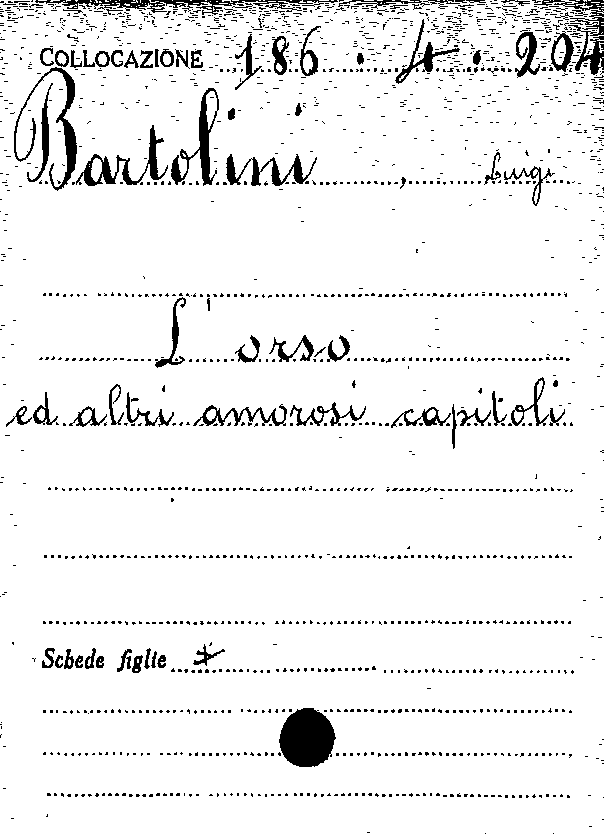 COLLOCAZIONE 186 . 4 . 204
Bartolini , Luigi
L'orso
ed altri amorosi capitoli
Schede figlie